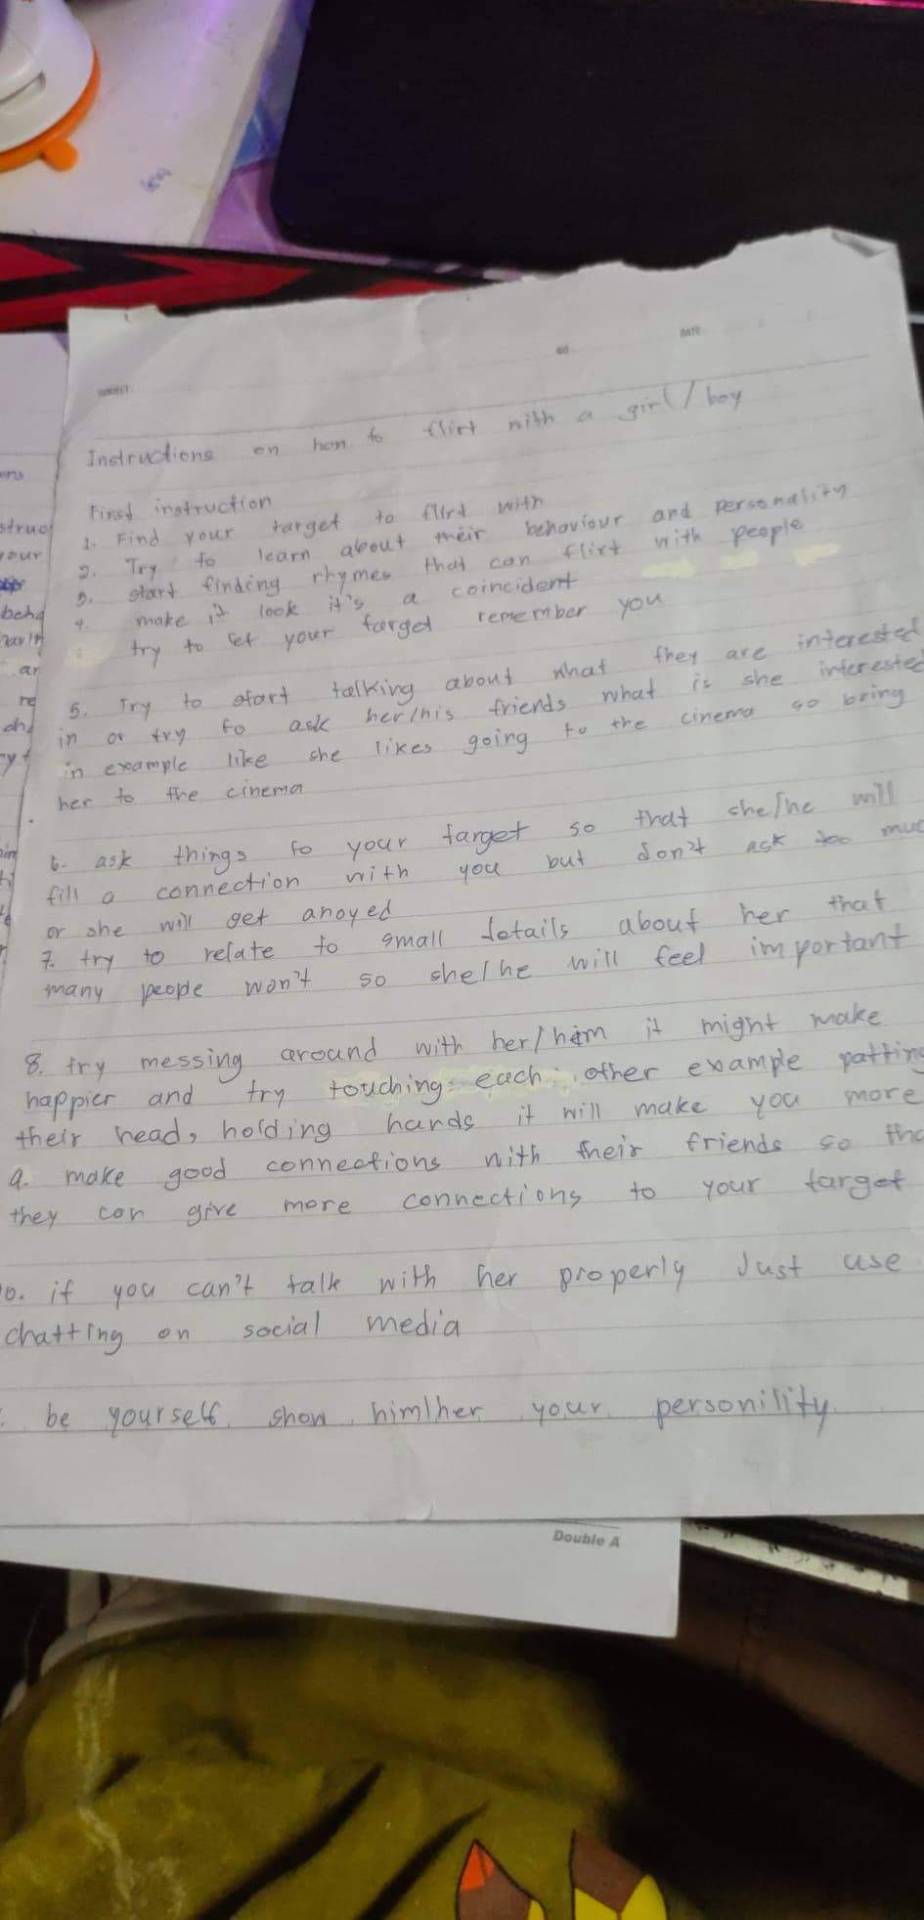 SUBJECT
NO
DATE
Instructions on how to flirt with a girl/boy
First instruction
1. Find your target to flirt with
2. Try to learn about their behaviour and personality
3. start finding rhymes that can flirt with people
4. make it look it's a coincident
try to let your target remember you
5. Try to start talking about what they are interested
in or try to ask her/his friends what is she interested
in example like she likes going to the cinema so bring
her to the cinema
6. ask things to your target so that she/he will
fill a connection with you but don't ask too muc
or she will get anoyed
7. try to relate to small details about her that
many people won't so she/he will feel important
8. try messing around with her/him it might make
happier and try touching each other example patting
their head, holding hands it will make you more
9. make good connections with their friends so tha
they can give more connections to your target
10. if you can't talk with her properly Just use
chatting on social media
be yourself show him/her your personility
Double A